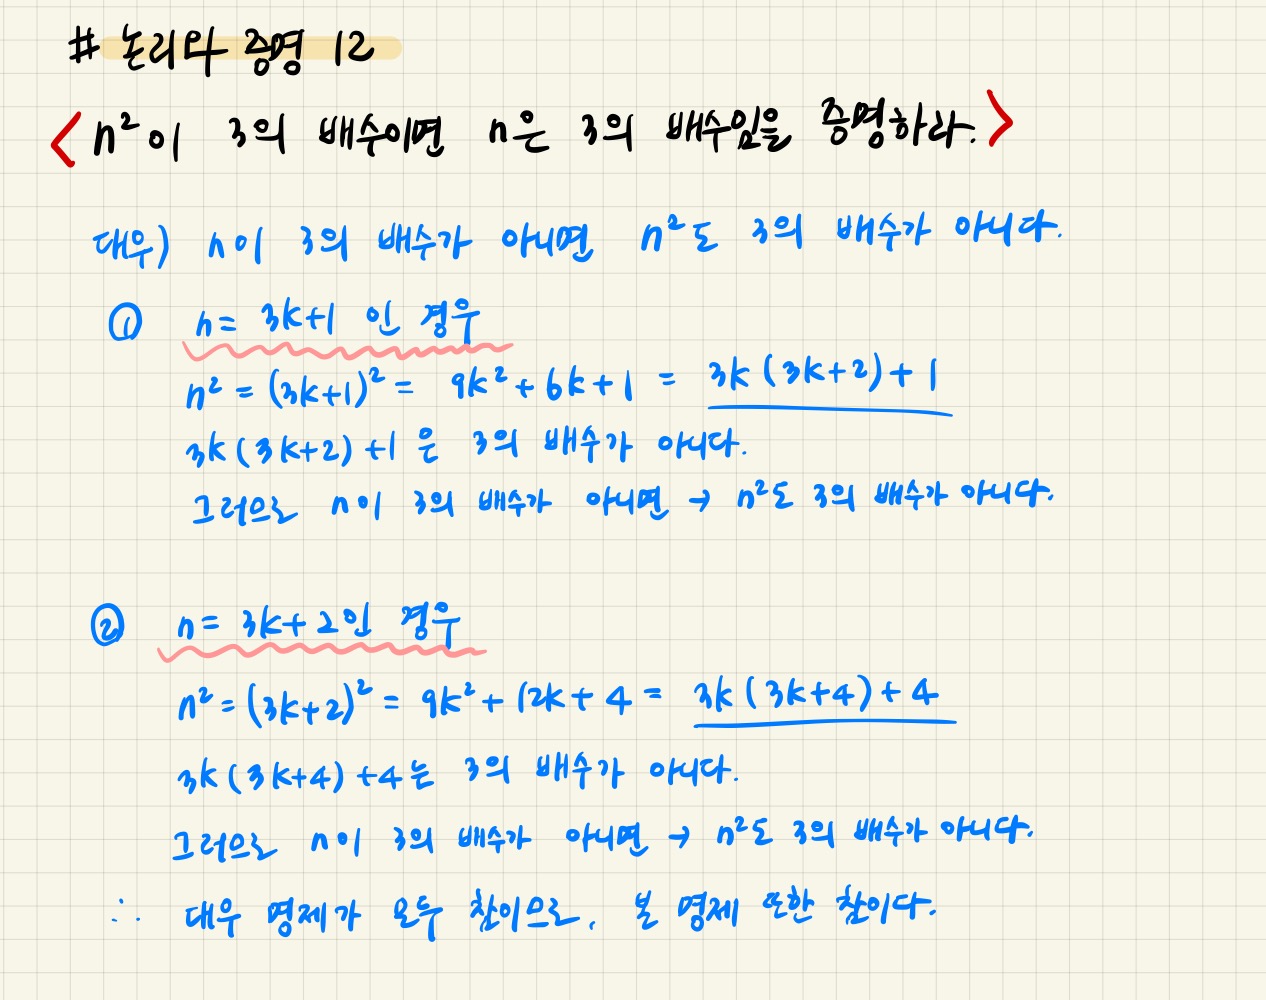 # 논리와 증명 12
<n²이 3의 배수이면 n은 3의 배수임을 증명하라.>
대우) n이 3의 배수가 아니면, n²도 3의 배수가 아니다.
① n = 3k+1 인 경우
n² = (3k+1)² = 9k² + 6k + 1 = 3k(3k+2)+1
3k(3k+2)+1 은 3의 배수가 아니다.
그러므로 n이 3의 배수가 아니면 → n²도 3의 배수가 아니다.
② n = 3k+2인 경우
n² = (3k+2)² = 9k² + 12k + 4 = 3k(3k+4)+4
3k(3k+4)+4는 3의 배수가 아니다.
그러므로 n이 3의 배수가 아니면 → n²도 3의 배수가 아니다.
∴ 대우 명제가 모두 참이므로, 본 명제 또한 참이다.